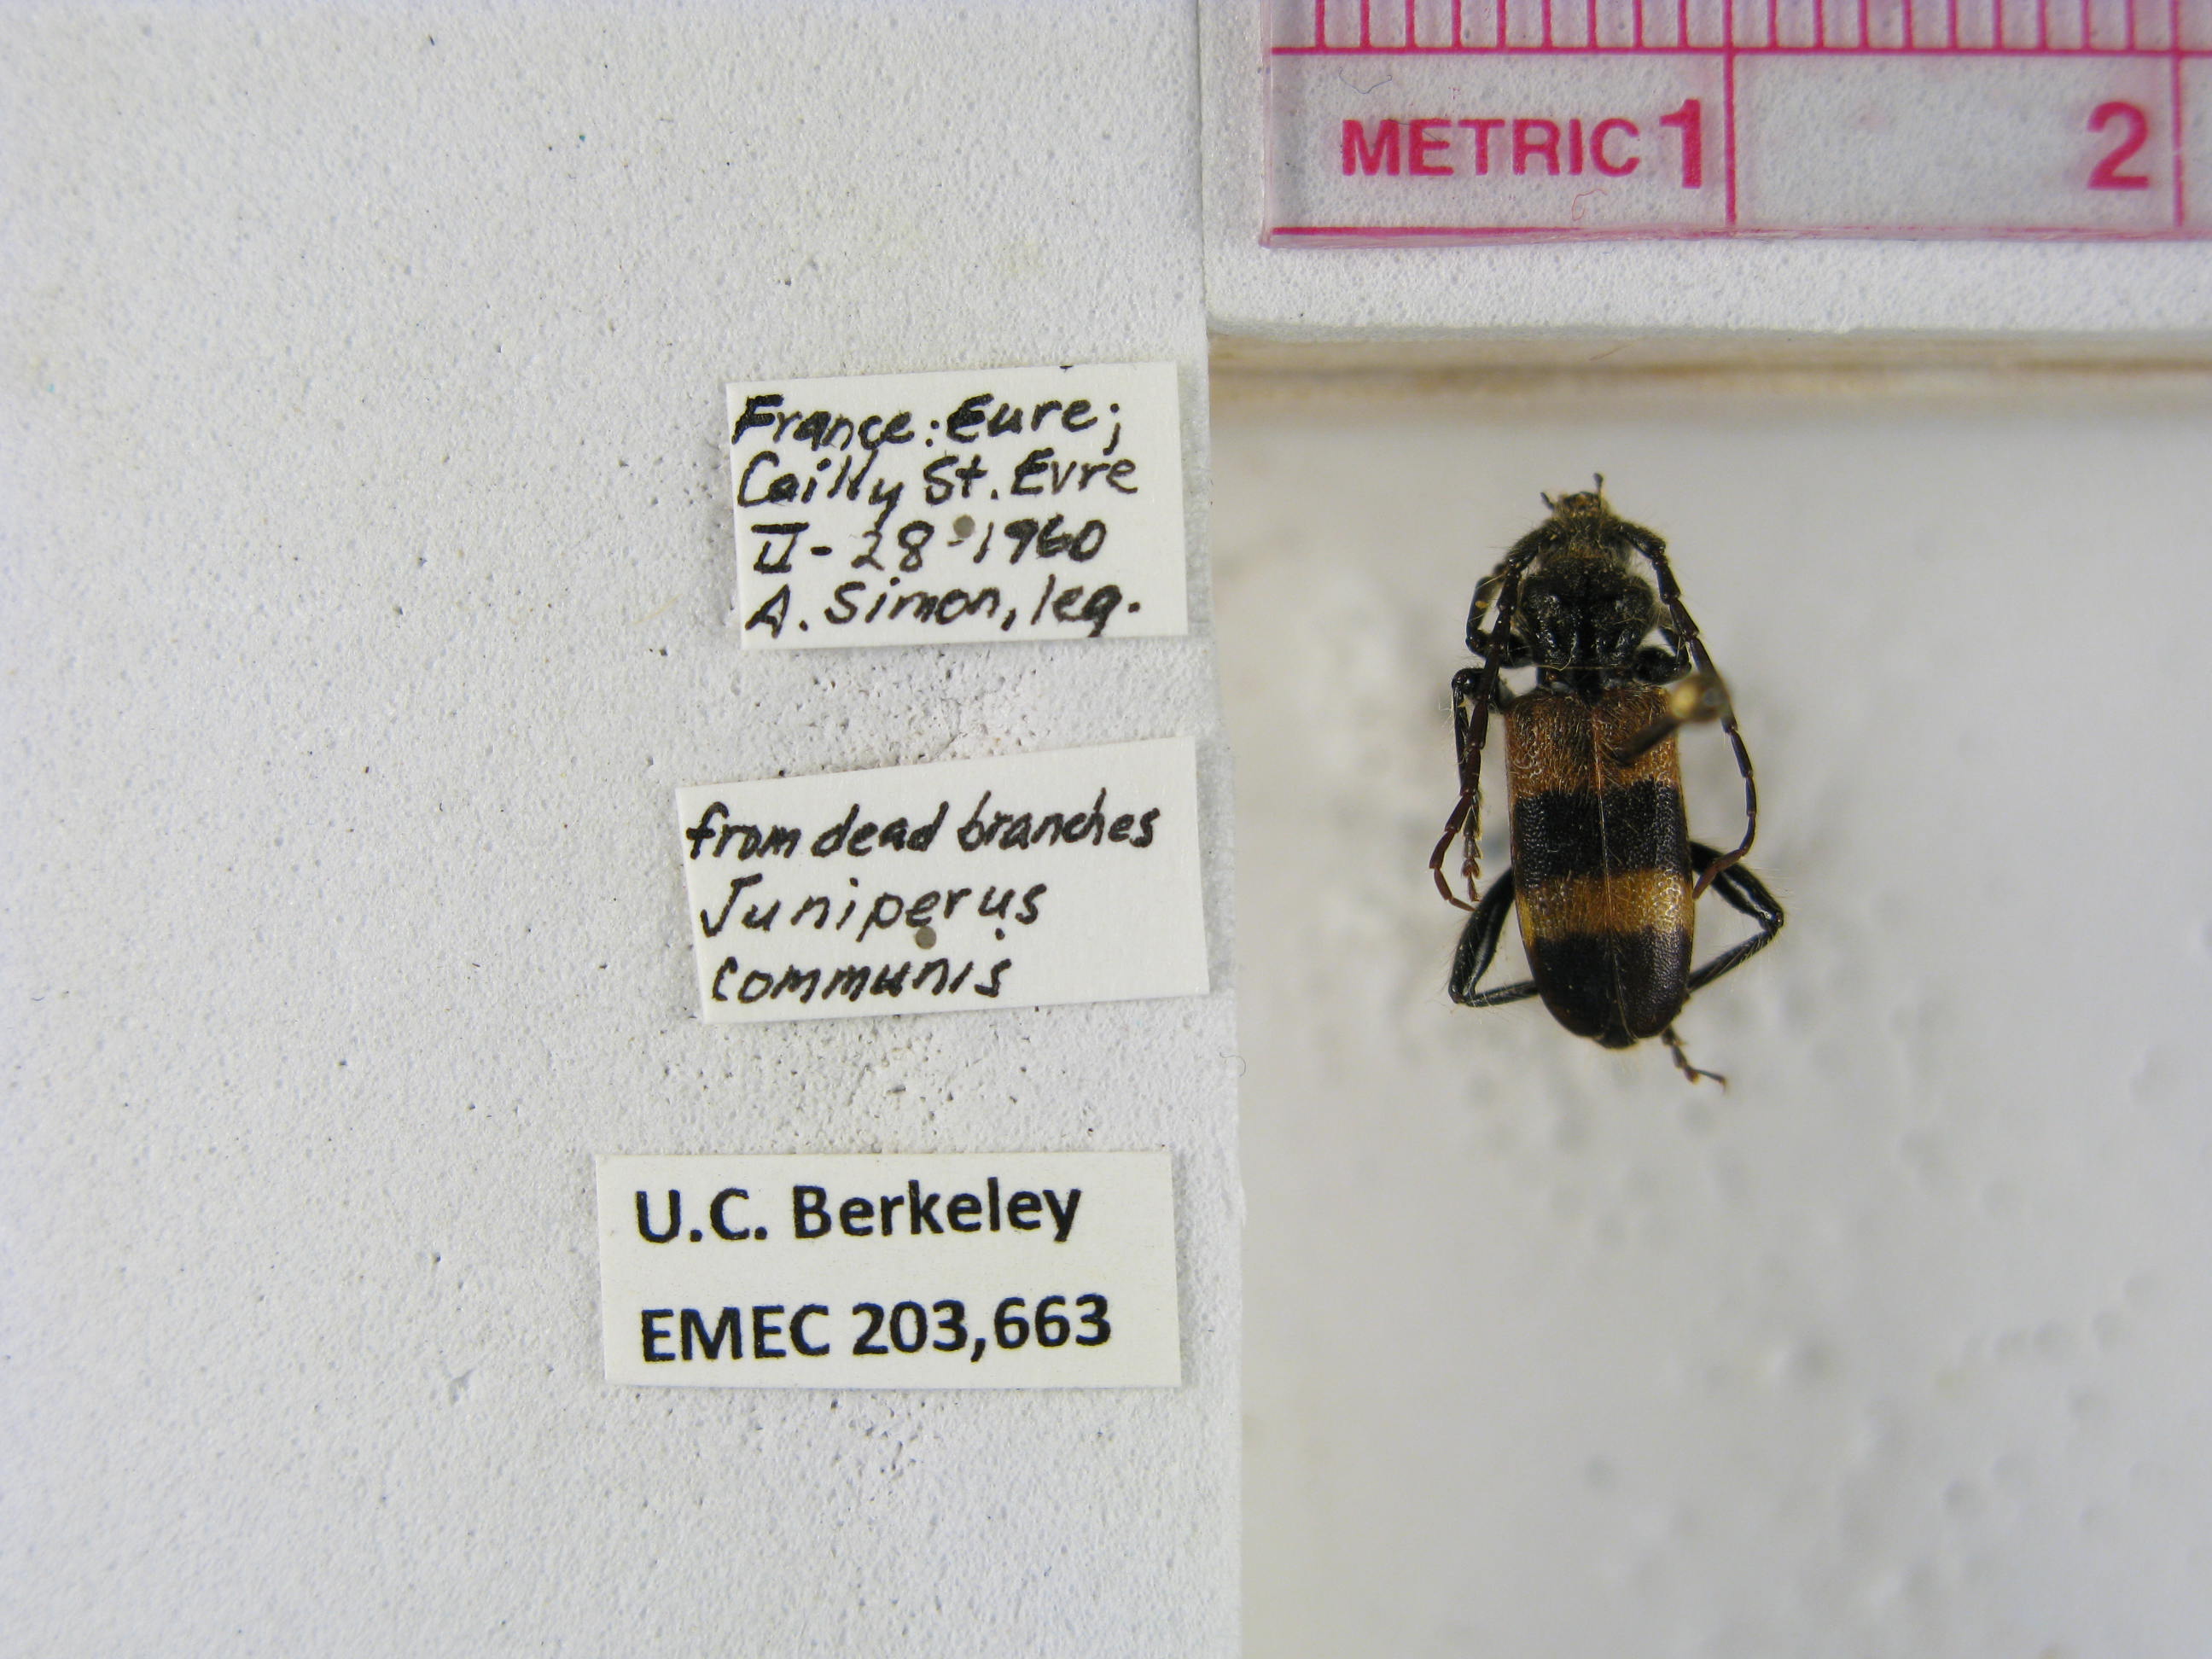 METRIC 1 2
France: Eure;
Cailly St. Evre
II-28-1960
A. Simon, leg.
from dead branches
Juniperus
communis
U.C. Berkeley
EMEC 203,663